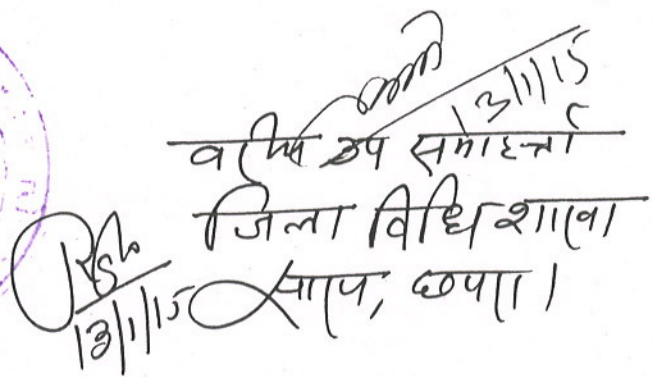 13/1/15
वरीय उप समाहर्त्ता
जिला विधि शाखा
सारण, छपरा।
13/1/15